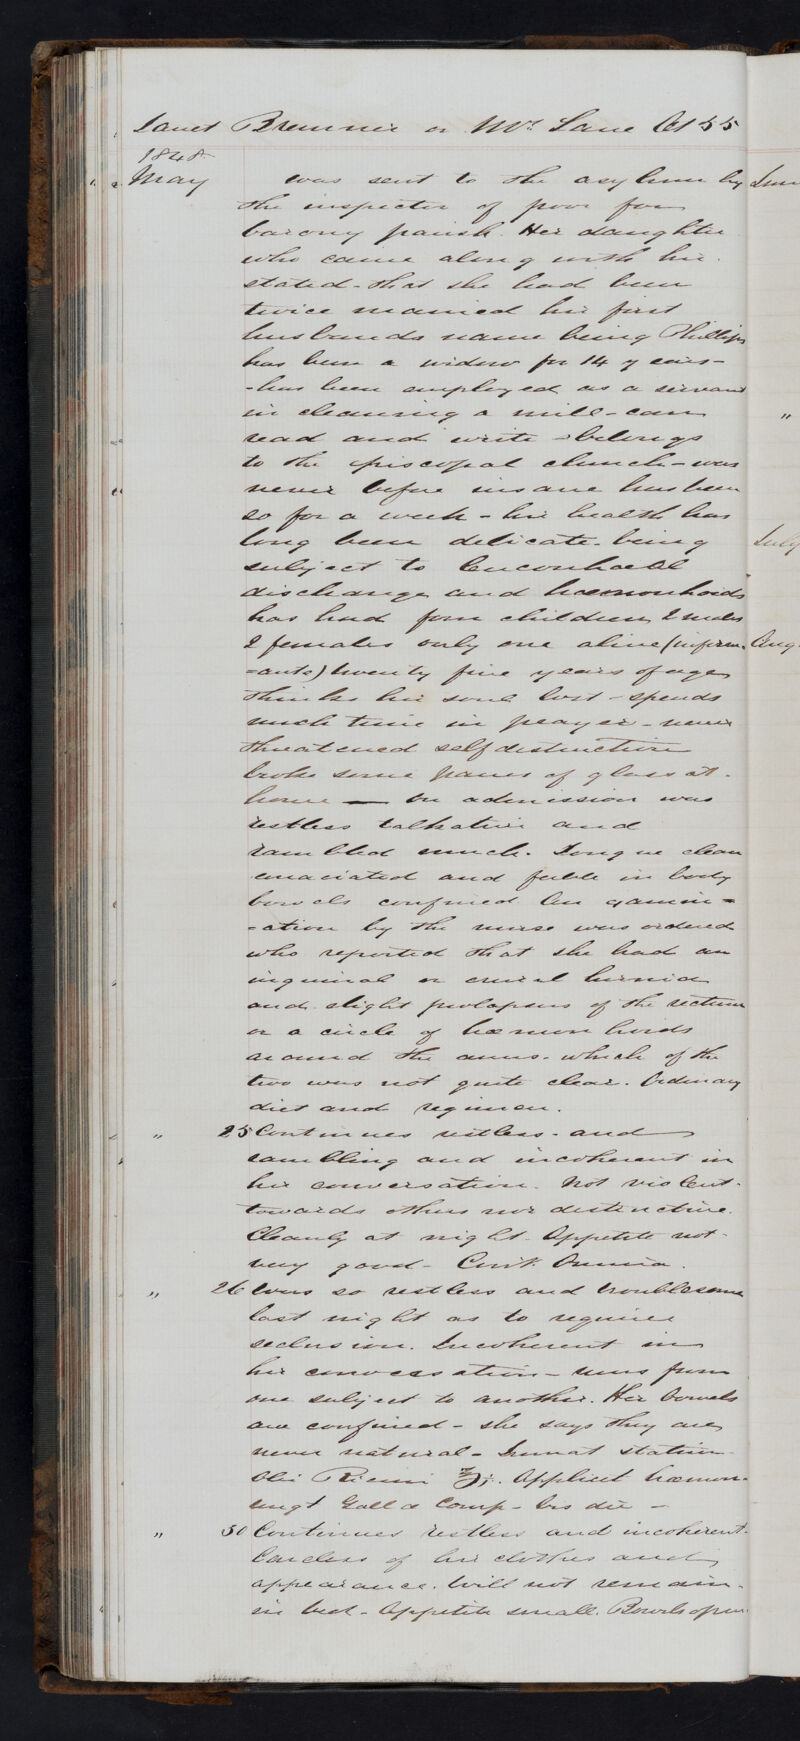 Janet Bremner or Mrs Lane Aet 55
1848
May was sent to the asylum by
the inspector of poor from
barony parish. Her daughter
who came along with her
stated that she had been
twice married her first
husbands name being Phillips
has been a widow for 14 years –
– has been employed as a servant
in cleaning a mill – can
read and write – belongs
to the episcopal church – was
never before insane has been
so for a week – her health has
long been delicate – being
subject to leucorrhoeal
discharge and hæmorrhoids
has had four children 2 males
2 females only one alive (inform-
=ante) twenty five years of age
thinks her soul lost – spends
much time in prayer – never
threatened self destruction
broke some panes of glass at
home — on admission was
restless talkative and
rambled much. Tongue clean
emaciated and feeble in body
bowels confined An examin=
=ation by the nurse was ordered
who reported that she had an
inguinal or crural hernia
and slight prolapsus of the rectum
or a circle of hæmorrhoids
around the anus. which of the
two was not quite clear. Ordinary
diet and regimen.
" 25 Continues restless and
rambling and incoherent in
her conversation. Not violent
towards others nor destructive.
Cleanly at night. Appetite not
very good – Cont. Omnia.
" 26 Was so restless and troublesome
last night as to require
seclusion. Incoherent in
her conversation – runs from
one subject to another. Her bowels
are confined – she says they are
never natural – Sumat statim
Olei Ricini ℥j. Applicet hæmorr.
ungt Gallæ Comp – bis die –
" 30 Continues restless and incoherent
Careless of her clothes and
appearance. Will not remain
in bed – Appetite small. Bowels open
"
July
Aug.